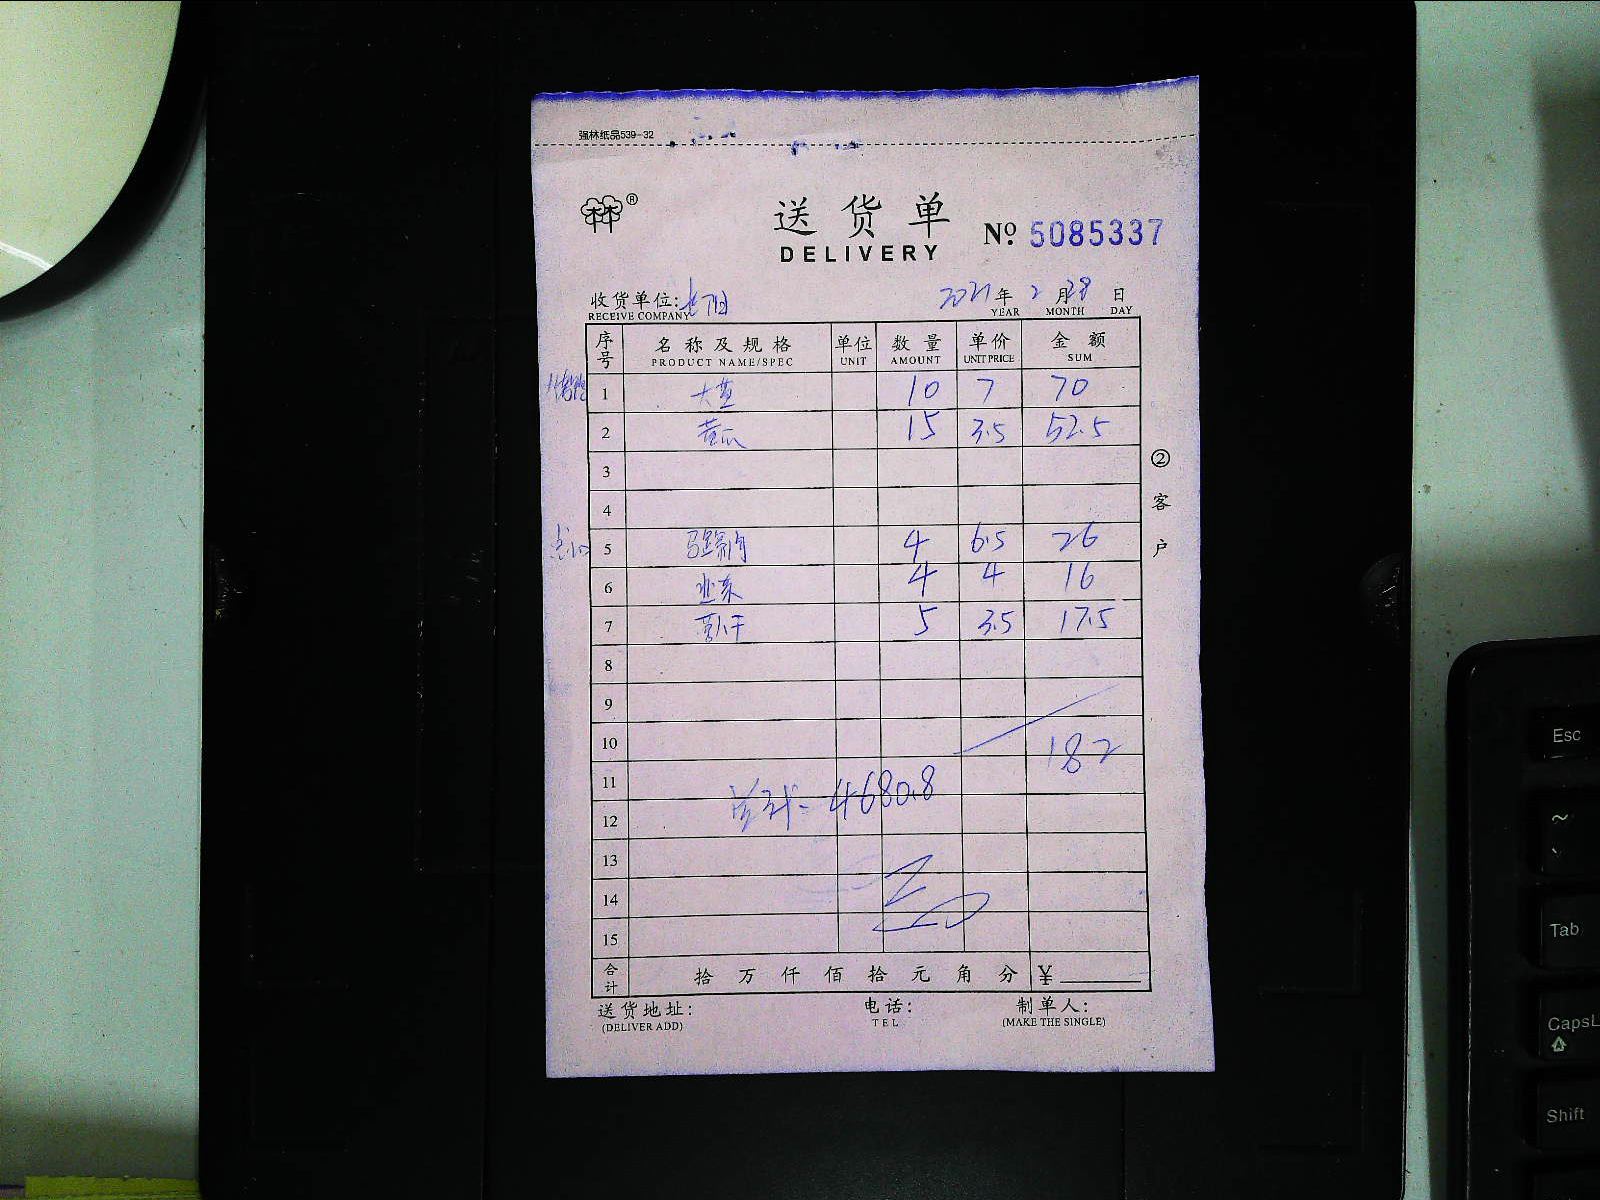 强林纸品539-32
林®
送货单 № 5085337
DELIVERY
收货单位: 2021年 2月28日
RECEIVE COMPANY YEAR MONTH DAY
序号 名称及规格 单位 数量 单价 金额
PRODUCT NAME/SPEC UNIT AMOUNT UNIT PRICE SUM
1 大 10 7 70
2 黄瓜 15 3.5 52.5
3
4
5 4 6.5 26
6 韭菜 4 4 16
7 5 3.5 17.5
8
9
10 182
11 4680.8
12
13
14
15
合计 拾万仟佰拾元角分 ¥
送货地址: 电话: 制单人:
(DELIVER ADD) TEL (MAKE THE SINGLE)
②客户
Esc
~
、
Tab
CapsL
Shift